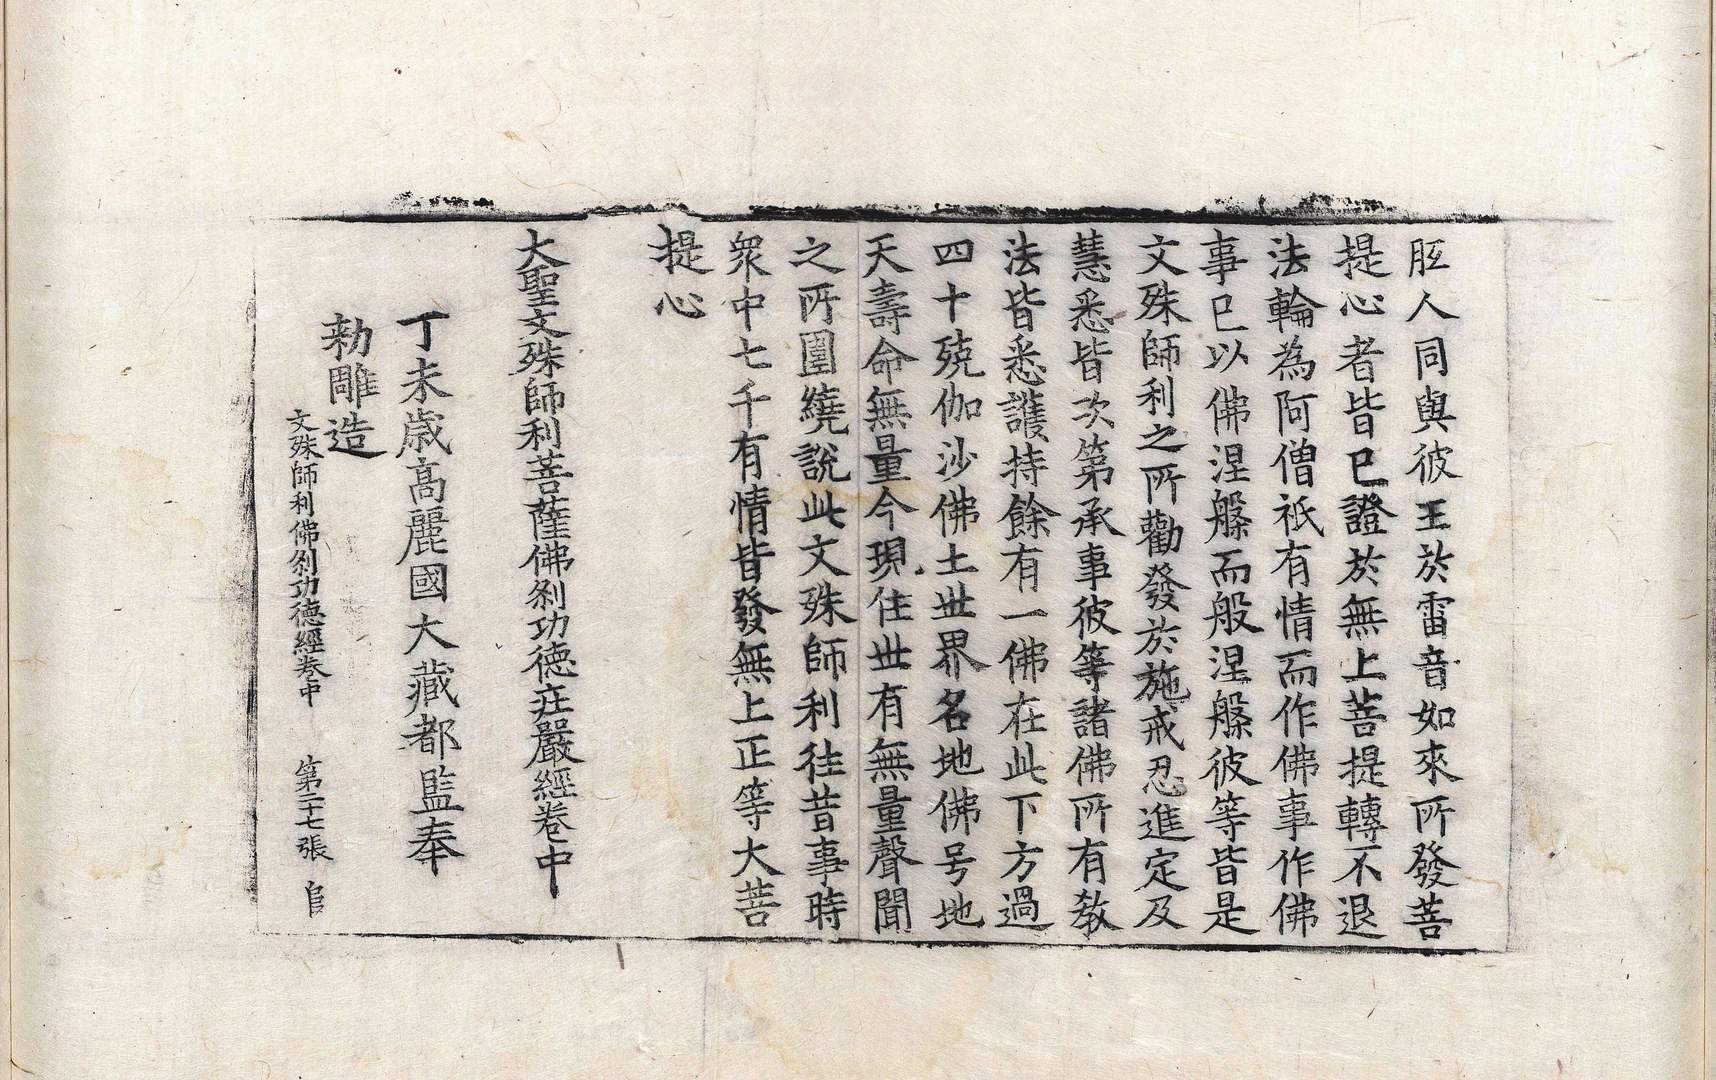 胝人同與彼王於雷音如來所發菩
提心者皆已證於無上菩提轉不退
法輪為阿僧祇有情而作佛事作佛
事已以佛涅槃而般涅槃彼等皆是
文殊師利之所勸發於施戒忍進定及
慧悉皆次第承事彼等諸佛所有教
法皆悉護持餘有一佛在此下方過
四十殑伽沙佛土世界名地佛号地
天壽命無量今現住世有無量聲聞
之所圍繞說此文殊師利往昔事時
衆中七千有情皆發無上正等大菩
提心
大聖文殊師利菩薩佛刹功德庄嚴經卷中
丁未歳高麗國大藏都監奉
勑雕造
文殊師利佛刹功德經卷中 第二十七張